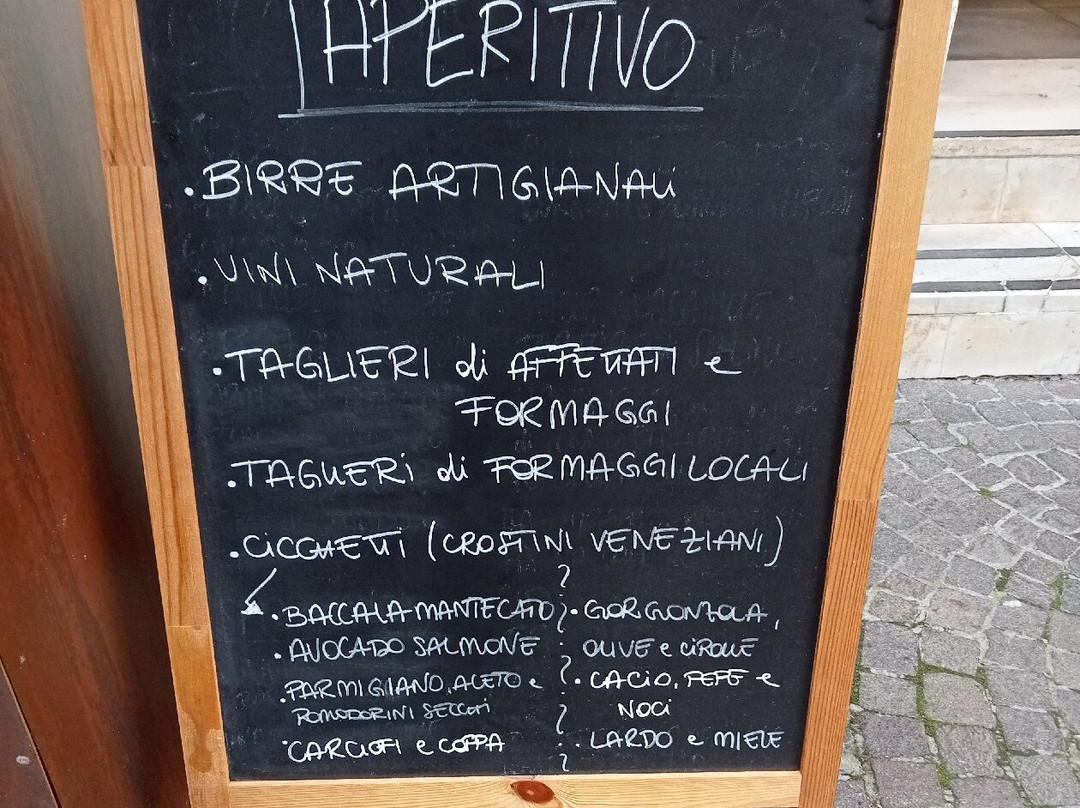 APERITIVO
. BIRRE ARTIGIANALi
. VINI NATURALI
. TAGLIERI di AFFETTATI e
FORMAGGI
. TAGLIERi di FORMAGGI LOCALI
. CiCCHETTi (CROSTINI VENEZIANI)
. BACCALA MANTECATO
. AVOCADO SALMONE
. PARMIGIANO, ACETO e
POMODORINI SECCHi
. CARCIOFI e COPPA
. GORGONZOLA,
OLIVE e CiPOLLE
. CACiO, PEPE e
NOCi
. LARDO e MIELE